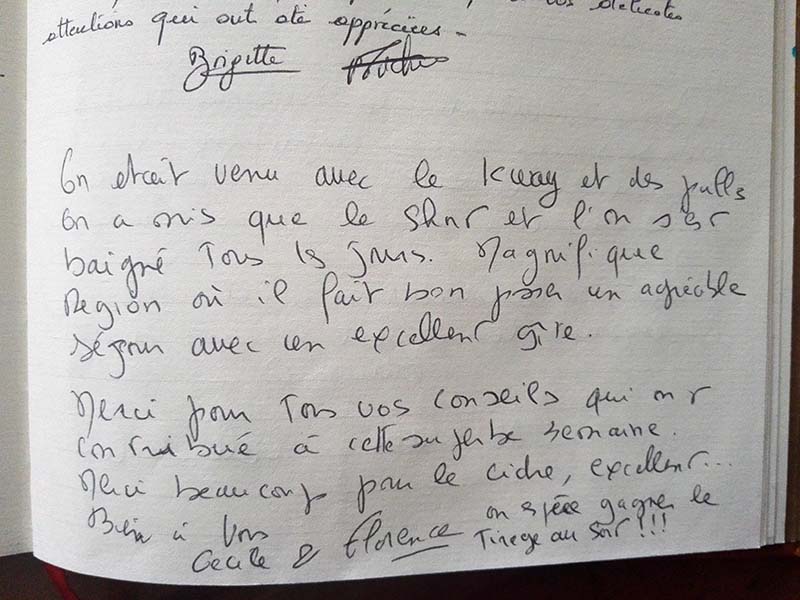 vos délicates
attentions qui ont été appréciées -
Brigitte
On etait venu avec le kway et des pulls
On a mis que le short et l'on s'est
baigné Tous les jours. Magnifique
Région où il fait bon passer un agréable
séjour avec un excellent gîte.
Merci pour Tous vos conseils qui ont
contribué à cette superbe semaine.
Merci beaucoup pour le cidre, excellent...
Bien à Vous
on espère gagner le
Cecile & Florence
Tirage au Sort !!!